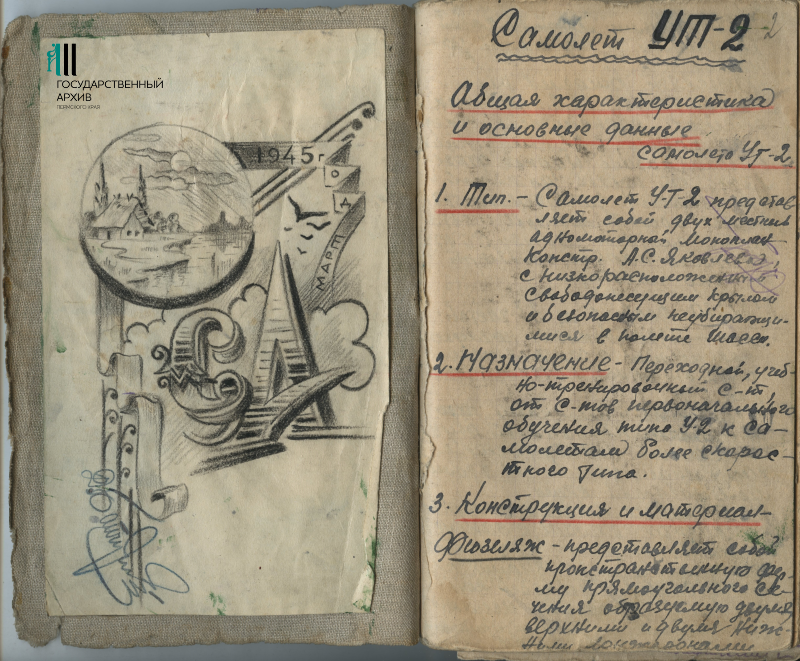 ГОСУДАРСТВЕННЫЙ
АРХИВ
ПЕРМСКОГО КРАЯ
1945 г.
ГОД
МАРТ
СА
Самолет УТ-2
-2
Общая характеристика
и основные данные
самолета УТ-2.
1. Тип. - Самолет У-Т-2 представ
ляет собой двух местный
одномоторной моноплан
Констр. А.С. Яковлева
с низкорасположеным
свободонесущим крылом
и безопасным неубирающи-
мися в полете шасси.
2. Назначение - Переходной, учеб-
но-тренировочный с-т,
от с-тов первоначального
обучения типа У-2 к са-
молетам более скорос-
тного типа.
3. Конструкция и материал-
Фюзеляж - представляет собой
пространственную фер-
му прямоугольного се-
чения образуемую двумя
верхними и двумя ниж-
ними лонжеронами